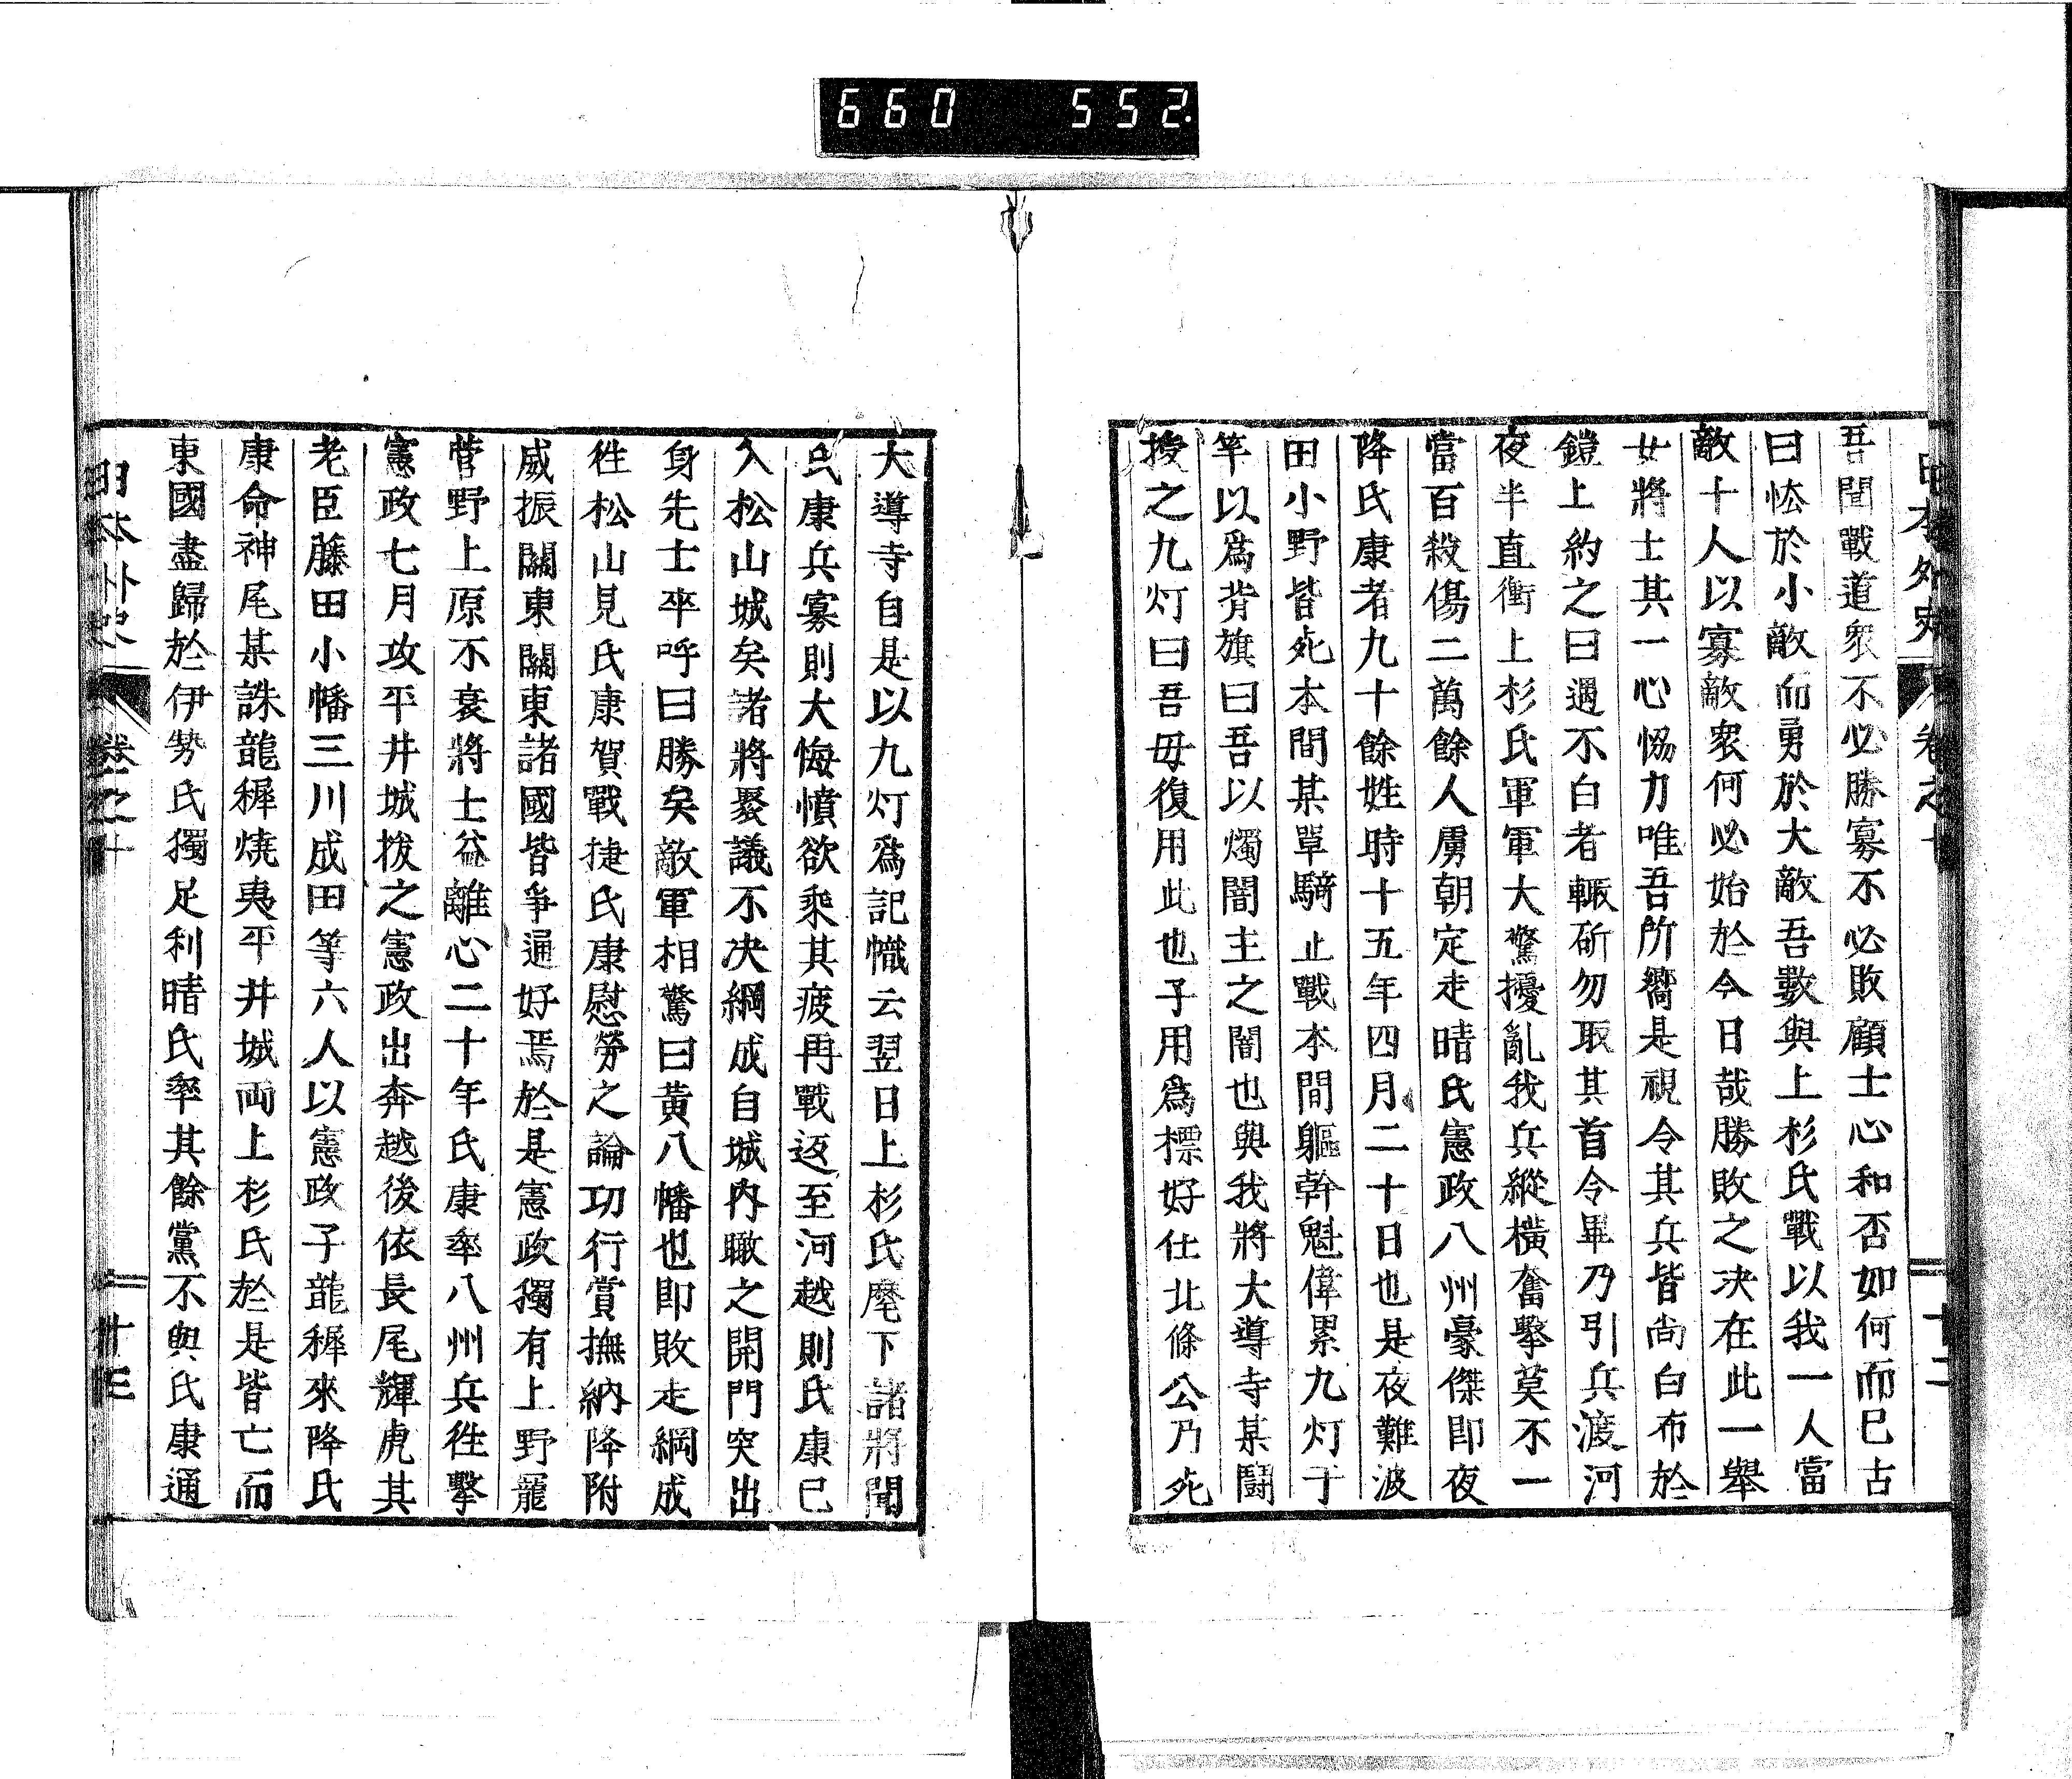 660 552.
日本外史 卷之十 十二
吾聞戰道衆不必勝寡不必敗顧士心和否如何而已古
曰恠於小敵而勇於大敵吾數與上杉氏戰以我一人當
敵十人以寡敵衆何必始於今日哉勝敗之決在此一擧
女將士其一心恊力唯吾所嚮是視令其兵皆尚白布於
鎧上約之曰遇不白者輙斫勿取其首令畢乃引兵渡河
夜半直衝上杉氏軍軍大驚擾亂我兵縱横奮擊莫不一
當百殺傷二萬餘人虜朝定走晴氏憲政八州豪傑即夜
降氏康者九十餘姓時十五年四月二十日也是夜難波
田小野皆死本間某單騎止戰本間軀幹魁偉累九灯于
竿以爲背旗曰吾以燭闇主之闇也與我將大導寺某鬪
授之九灯曰吾毋復用此也子用爲標好仕北條公乃死
大導寺自是以九灯爲記幟云翌日上杉氏麾下諸將聞
氏康兵寡則大悔憤欲乘其疲再戰返至河越則氏康已
入松山城矣諸將聚議不決綱成自城内瞰之開門突出
身先士卒呼曰勝矣敵軍相驚曰黃八幡也即敗走綱成
徃松山見氏康賀戰捷氏康慰勞之論功行賞撫納降附
威振關東關東諸國皆爭通好焉於是憲政獨有上野寵
菅野上原不衰將士益離心二十年氏康率八州兵徃擊
憲政七月攻平井城拔之憲政出奔越後依長尾輝虎其
老臣藤田小幡三川成田等六人以憲政子龍穉來降氏
康命神尾某誅龍穉燒夷平井城両上杉氏於是皆亡而
東國盡歸於伊勢氏獨足利晴氏率其餘黨不與氏康通
日本外史 卷之十 十三